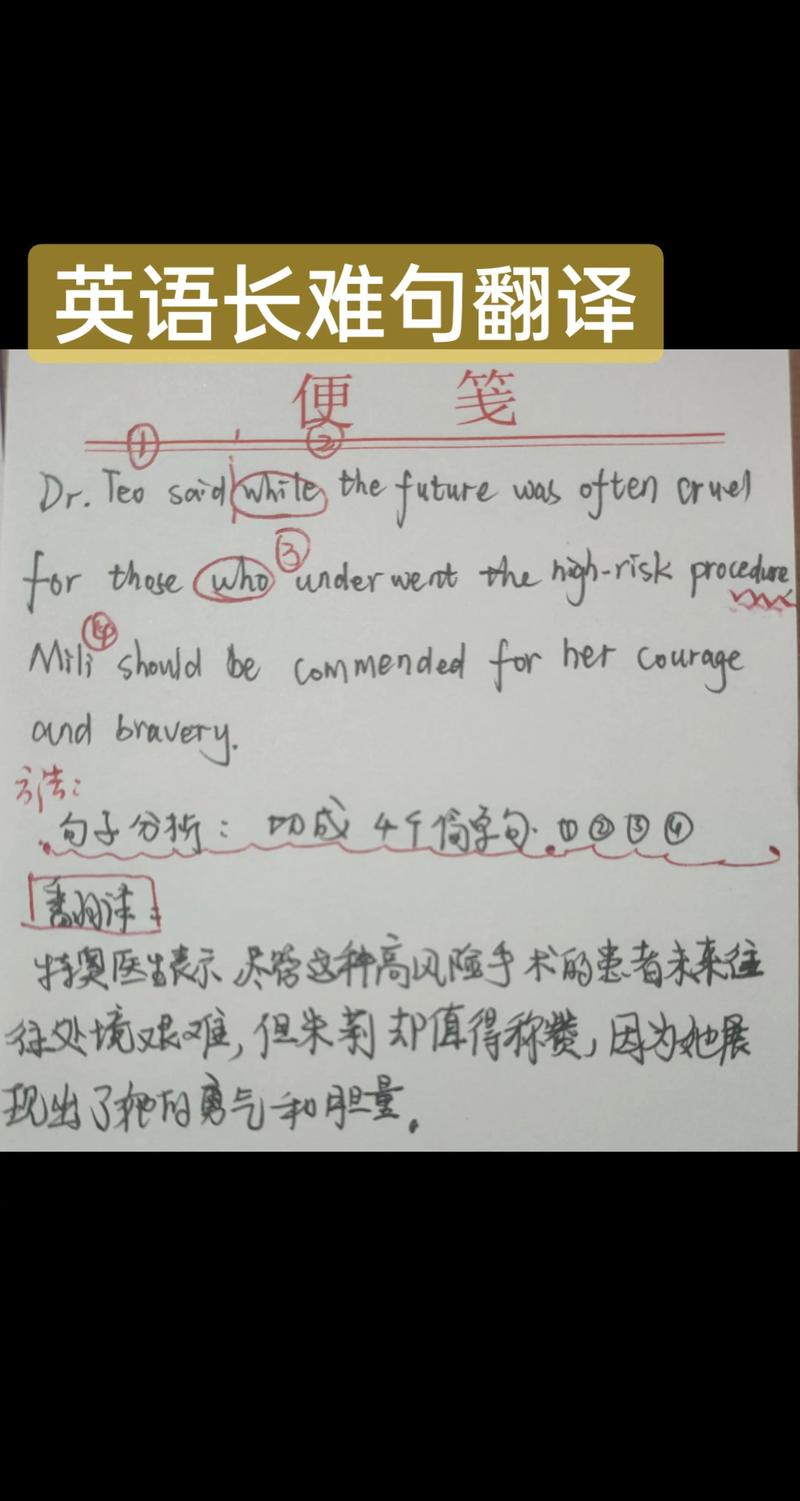 英语长难句翻译
便 笺
① ②
Dr. Teo said while the future was often cruel
③
for those who underwent the high-risk procedure
④
Mili should be commended for her courage
and bravery.
方法:
句子分析: 切成 4个简单句. ① ② ③ ④
翻译:
特奥医生表示 尽管这种高风险手术的患者未来往
往处境艰难, 但朱莉却值得称赞, 因为她展
现出了她的勇气和胆量。